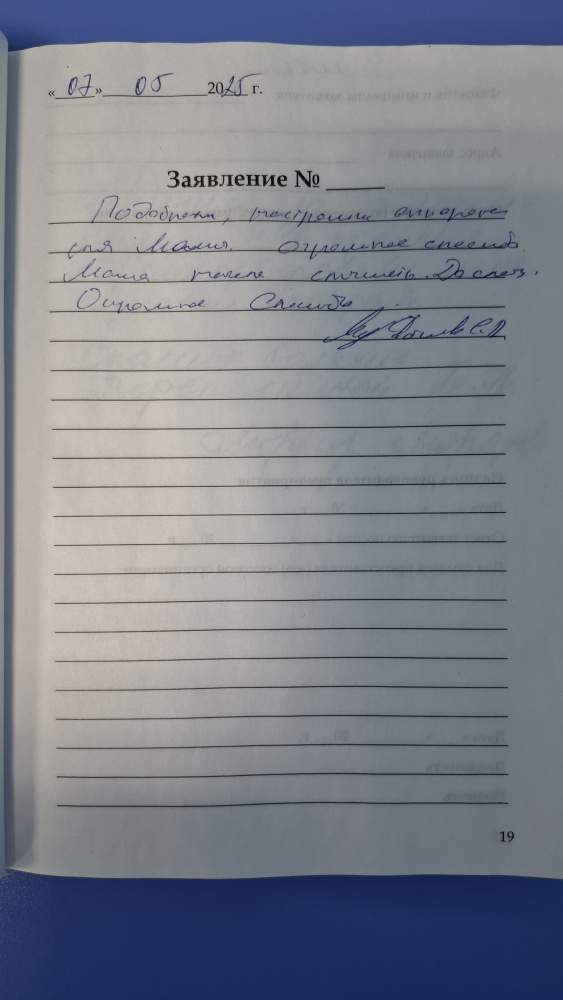 «07» 05 2025 г.
Заявление № ____
Подобрали, настроили аппарат
для Мамы. Огромное спасибо.
Мама начала слышать. До слёз.
Огромное Спасибо.
19